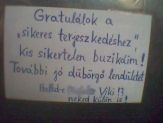 Gratulálok a
„sikeres terjeszkedéshez",
kis sikertelen buzikáim!
További jó dübörgő lendületet
Viki!?
neked külön is!